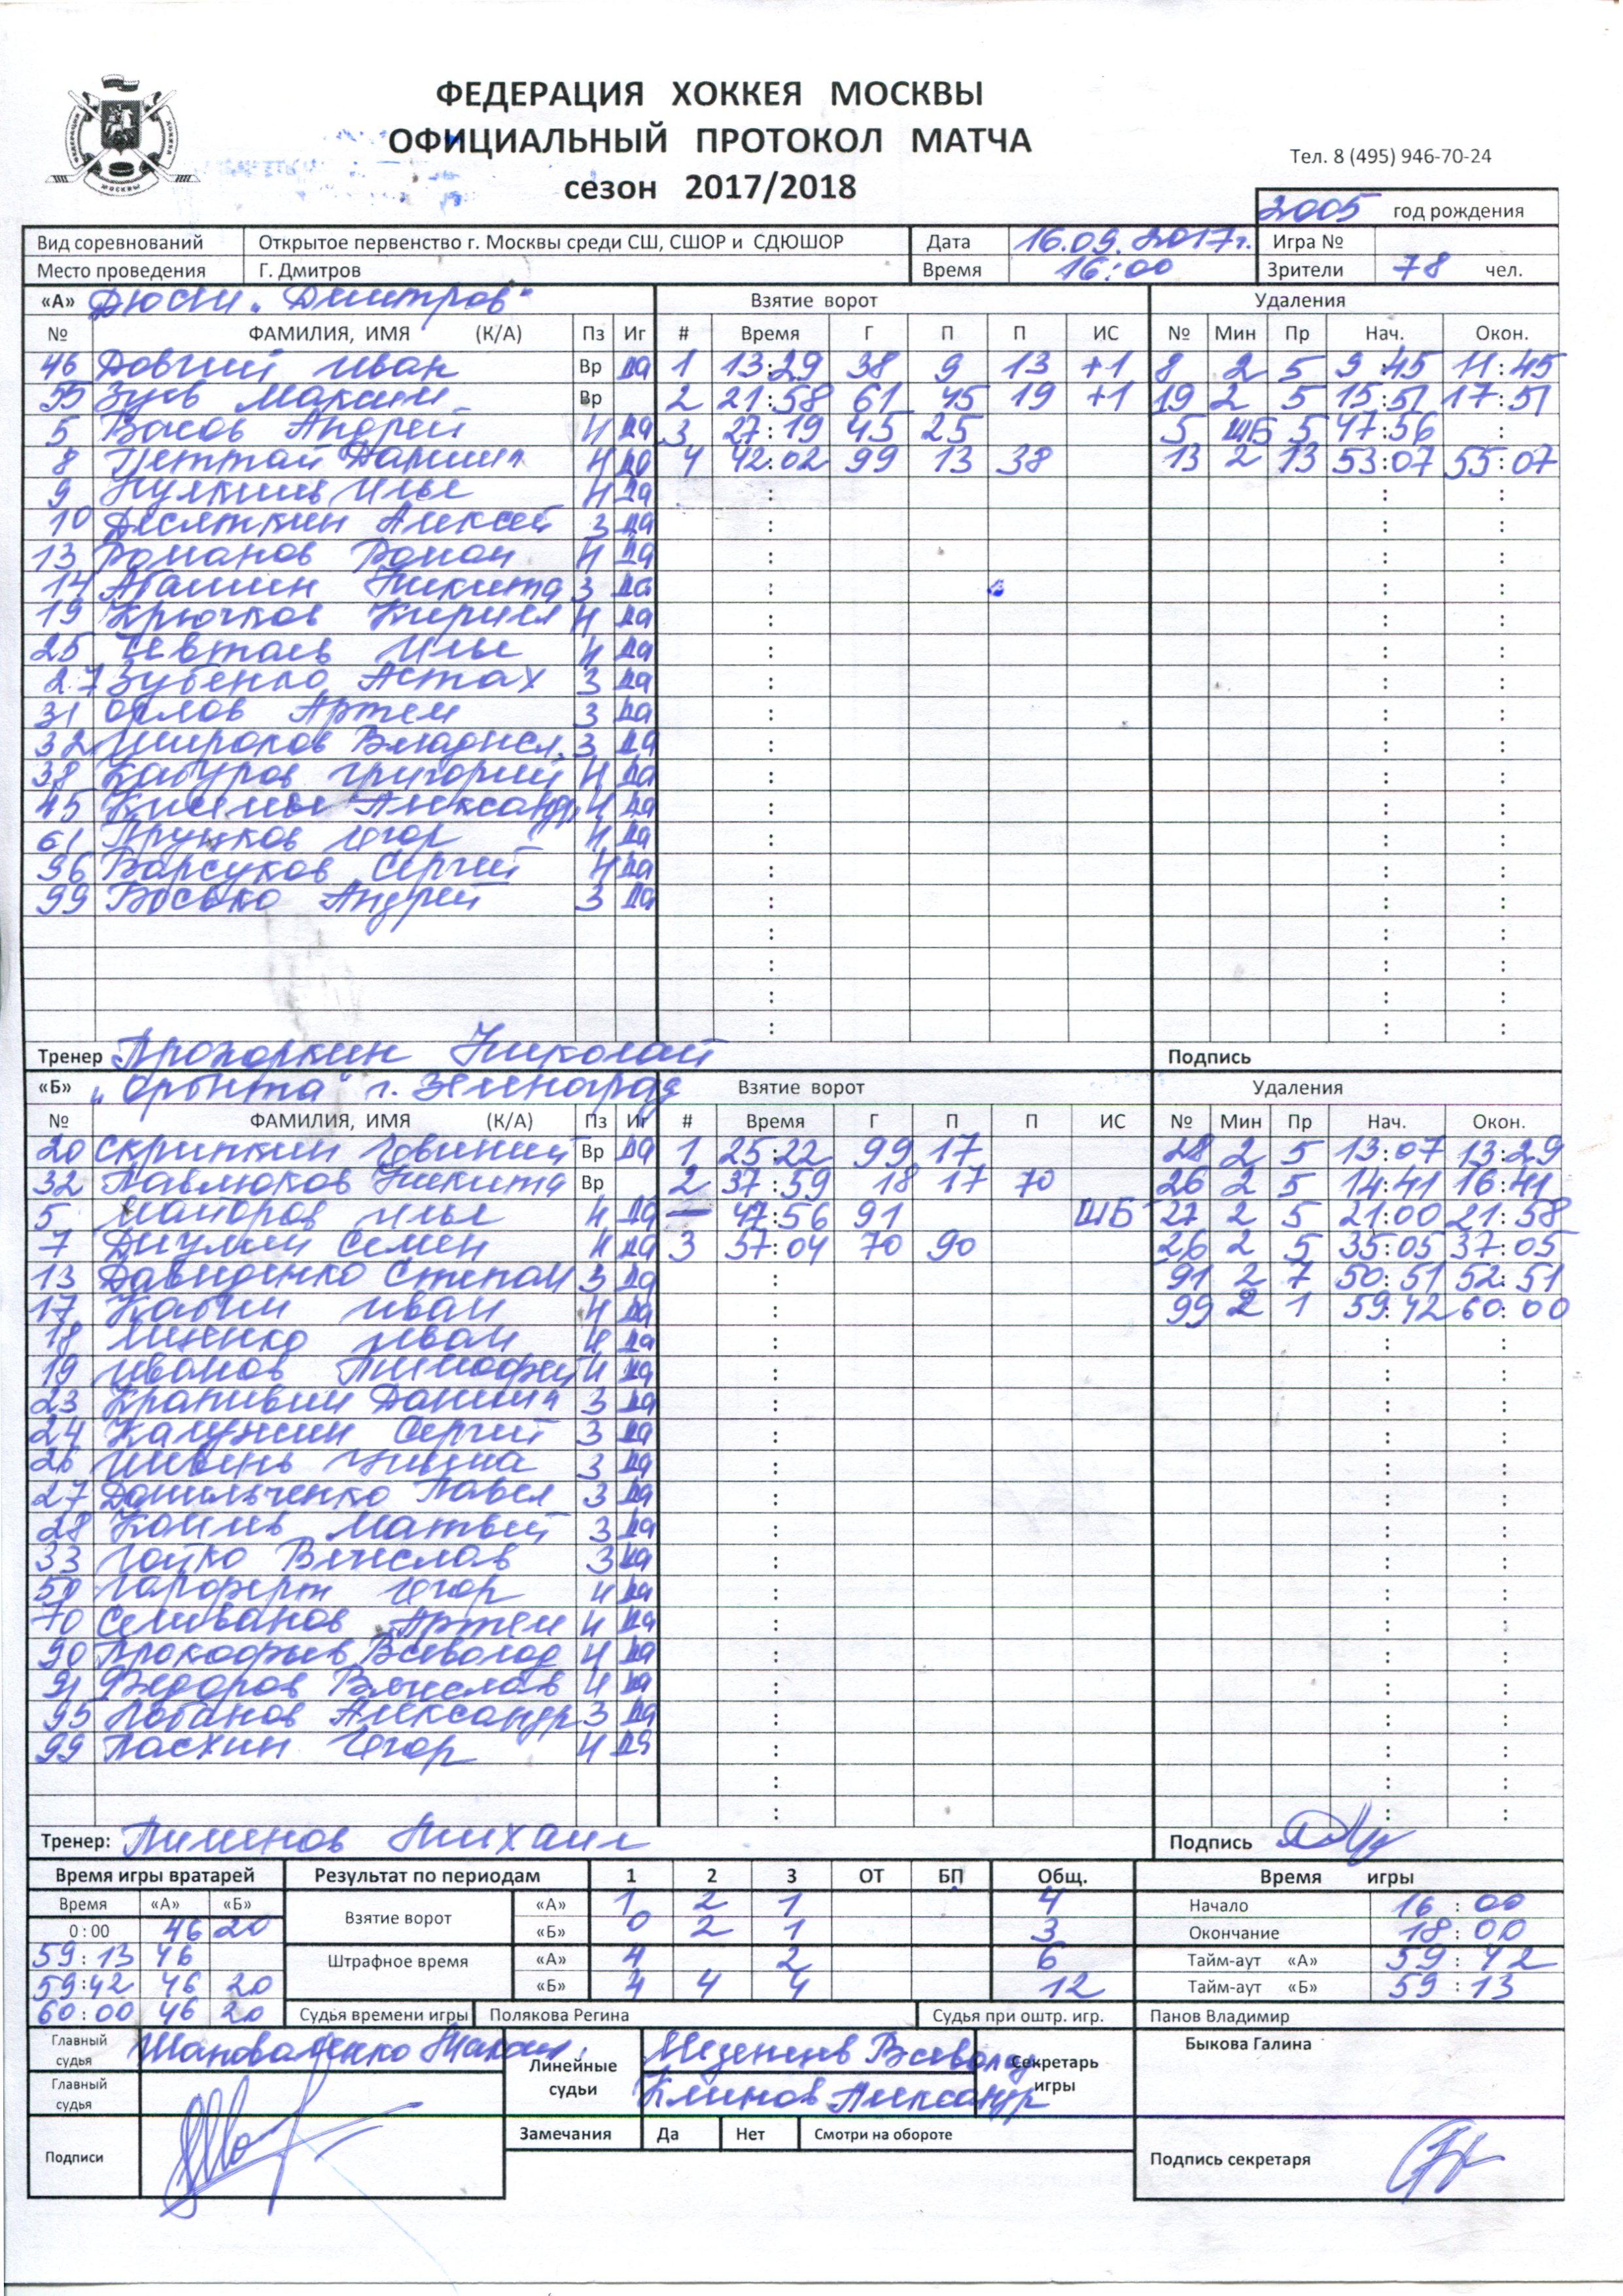 ФЕДЕРАЦИЯ ХОККЕЯ МОСКВЫ
ОФИЦИАЛЬНЫЙ ПРОТОКОЛ МАТЧА
Тел. 8 (495) 946-70-24
сезон 2017/2018
2005 год рождения
Вид соревнований Открытое первенство г. Москвы среди СШ, СШОР и СДЮШОР Дата 16.09.2017г. Игра №
Место проведения Г. Дмитров Время 16:00 Зрители 78 чел.
«А» "Дмитров" Взятие ворот Удаления
№ ФАМИЛИЯ, ИМЯ (К/А) Пз Иг # Время Г П П ИС № Мин Пр Нач. Окон.
46 Довгий Иван Вр да 1 13:29 38 9 13 +1 8 2 5 9:45 11:45
55 Зуев Максим Вр 2 21:58 61 45 19 +1 19 2 5 15:51 17:51
5 Васов Андрей Н да 3 27:19 45 25 5 ШБ 5 47:56 :
8 Даниил Н да 4 42:02 99 13 38 13 2 13 53:07 55:07
9 Илья Н да : : :
10 Десяткин Алексей З да : : :
13 Романов Роман Н да : : :
14 Абашин Никита З да : : :
19 Крючков Кирилл Н да : : :
25 Илья Н да : : :
27 Зубенко Астах З да : : :
31 Орлов Артем З да : : :
32 Широков Владисл. З да : : :
38 Кабуров Григорий Н да : : :
45 Александр Н да : : :
61 Прушков Егор Н да : : :
96 Барсуков Сергей Н да : : :
99 Восько Андрей З да : : :
: : :
: : :
: : :
: : :
Тренер Прохоркин Николай Подпись
«Б» "Орбита" г. Зеленоград Взятие ворот Удаления
№ ФАМИЛИЯ, ИМЯ (К/А) Пз Иг # Время Г П П ИС № Мин Пр Нач. Окон.
20 Скрипкин Евгений Вр да 1 25:22 99 17 28 2 5 13:07 13:29
32 Павлюков Никита Вр 2 37:59 18 17 70 26 2 5 14:41 16:41
5 Майоров Илья Н да — 47:56 91 ШБ 27 2 5 21:00 21:58
7 Семен Н да 3 57:04 70 90 26 2 5 35:05 37:05
13 Давиденко Степан З да : 91 2 7 50:51 52:51
17 Кабин Иван Н да : 99 2 1 59:42 60:00
18 Линько Иван Н да : : :
19 Иванов Тимофей Н да : : :
23 Крапивин Даниил З да : : :
24 Калужин Сергей З да : : :
26 Шивень Никита З да : : :
27 Данильченко Павел З да : : :
28 Матвей З да : : :
33 Гойко Вячеслав З да : : :
50 Егор Н да : : :
70 Селиванов Артем Н да : : :
90 Прокофьев Всеволод Н да : : :
91 Федоров Вячеслав Н да : : :
95 Лобанов Александр З да : : :
99 Пасхин Егор Н да : : :
: : :
: : :
Тренер: Пименов Михаил Подпись
Время игры вратарей Результат по периодам 1 2 3 ОТ БП Общ. Время игры
Время «А» «Б» Взятие ворот «А» 1 2 1 4 Начало 16:00
0:00 46 20 «Б» 0 2 1 3 Окончание 18:00
59:13 46 Штрафное время «А» 4 2 6 Тайм-аут «А» 59:42
59:42 46 20 «Б» 4 4 4 12 Тайм-аут «Б» 59:13
60:00 46 20 Судья времени игры Полякова Регина Судья при оштр. игр. Панов Владимир
Главный судья Шаповаленко Линейные судьи Мезенцев Всеволод Секретарь игры Быкова Галина
Главный судья Климов Александр
Замечания Да Нет Смотри на обороте
Подписи Подпись секретаря